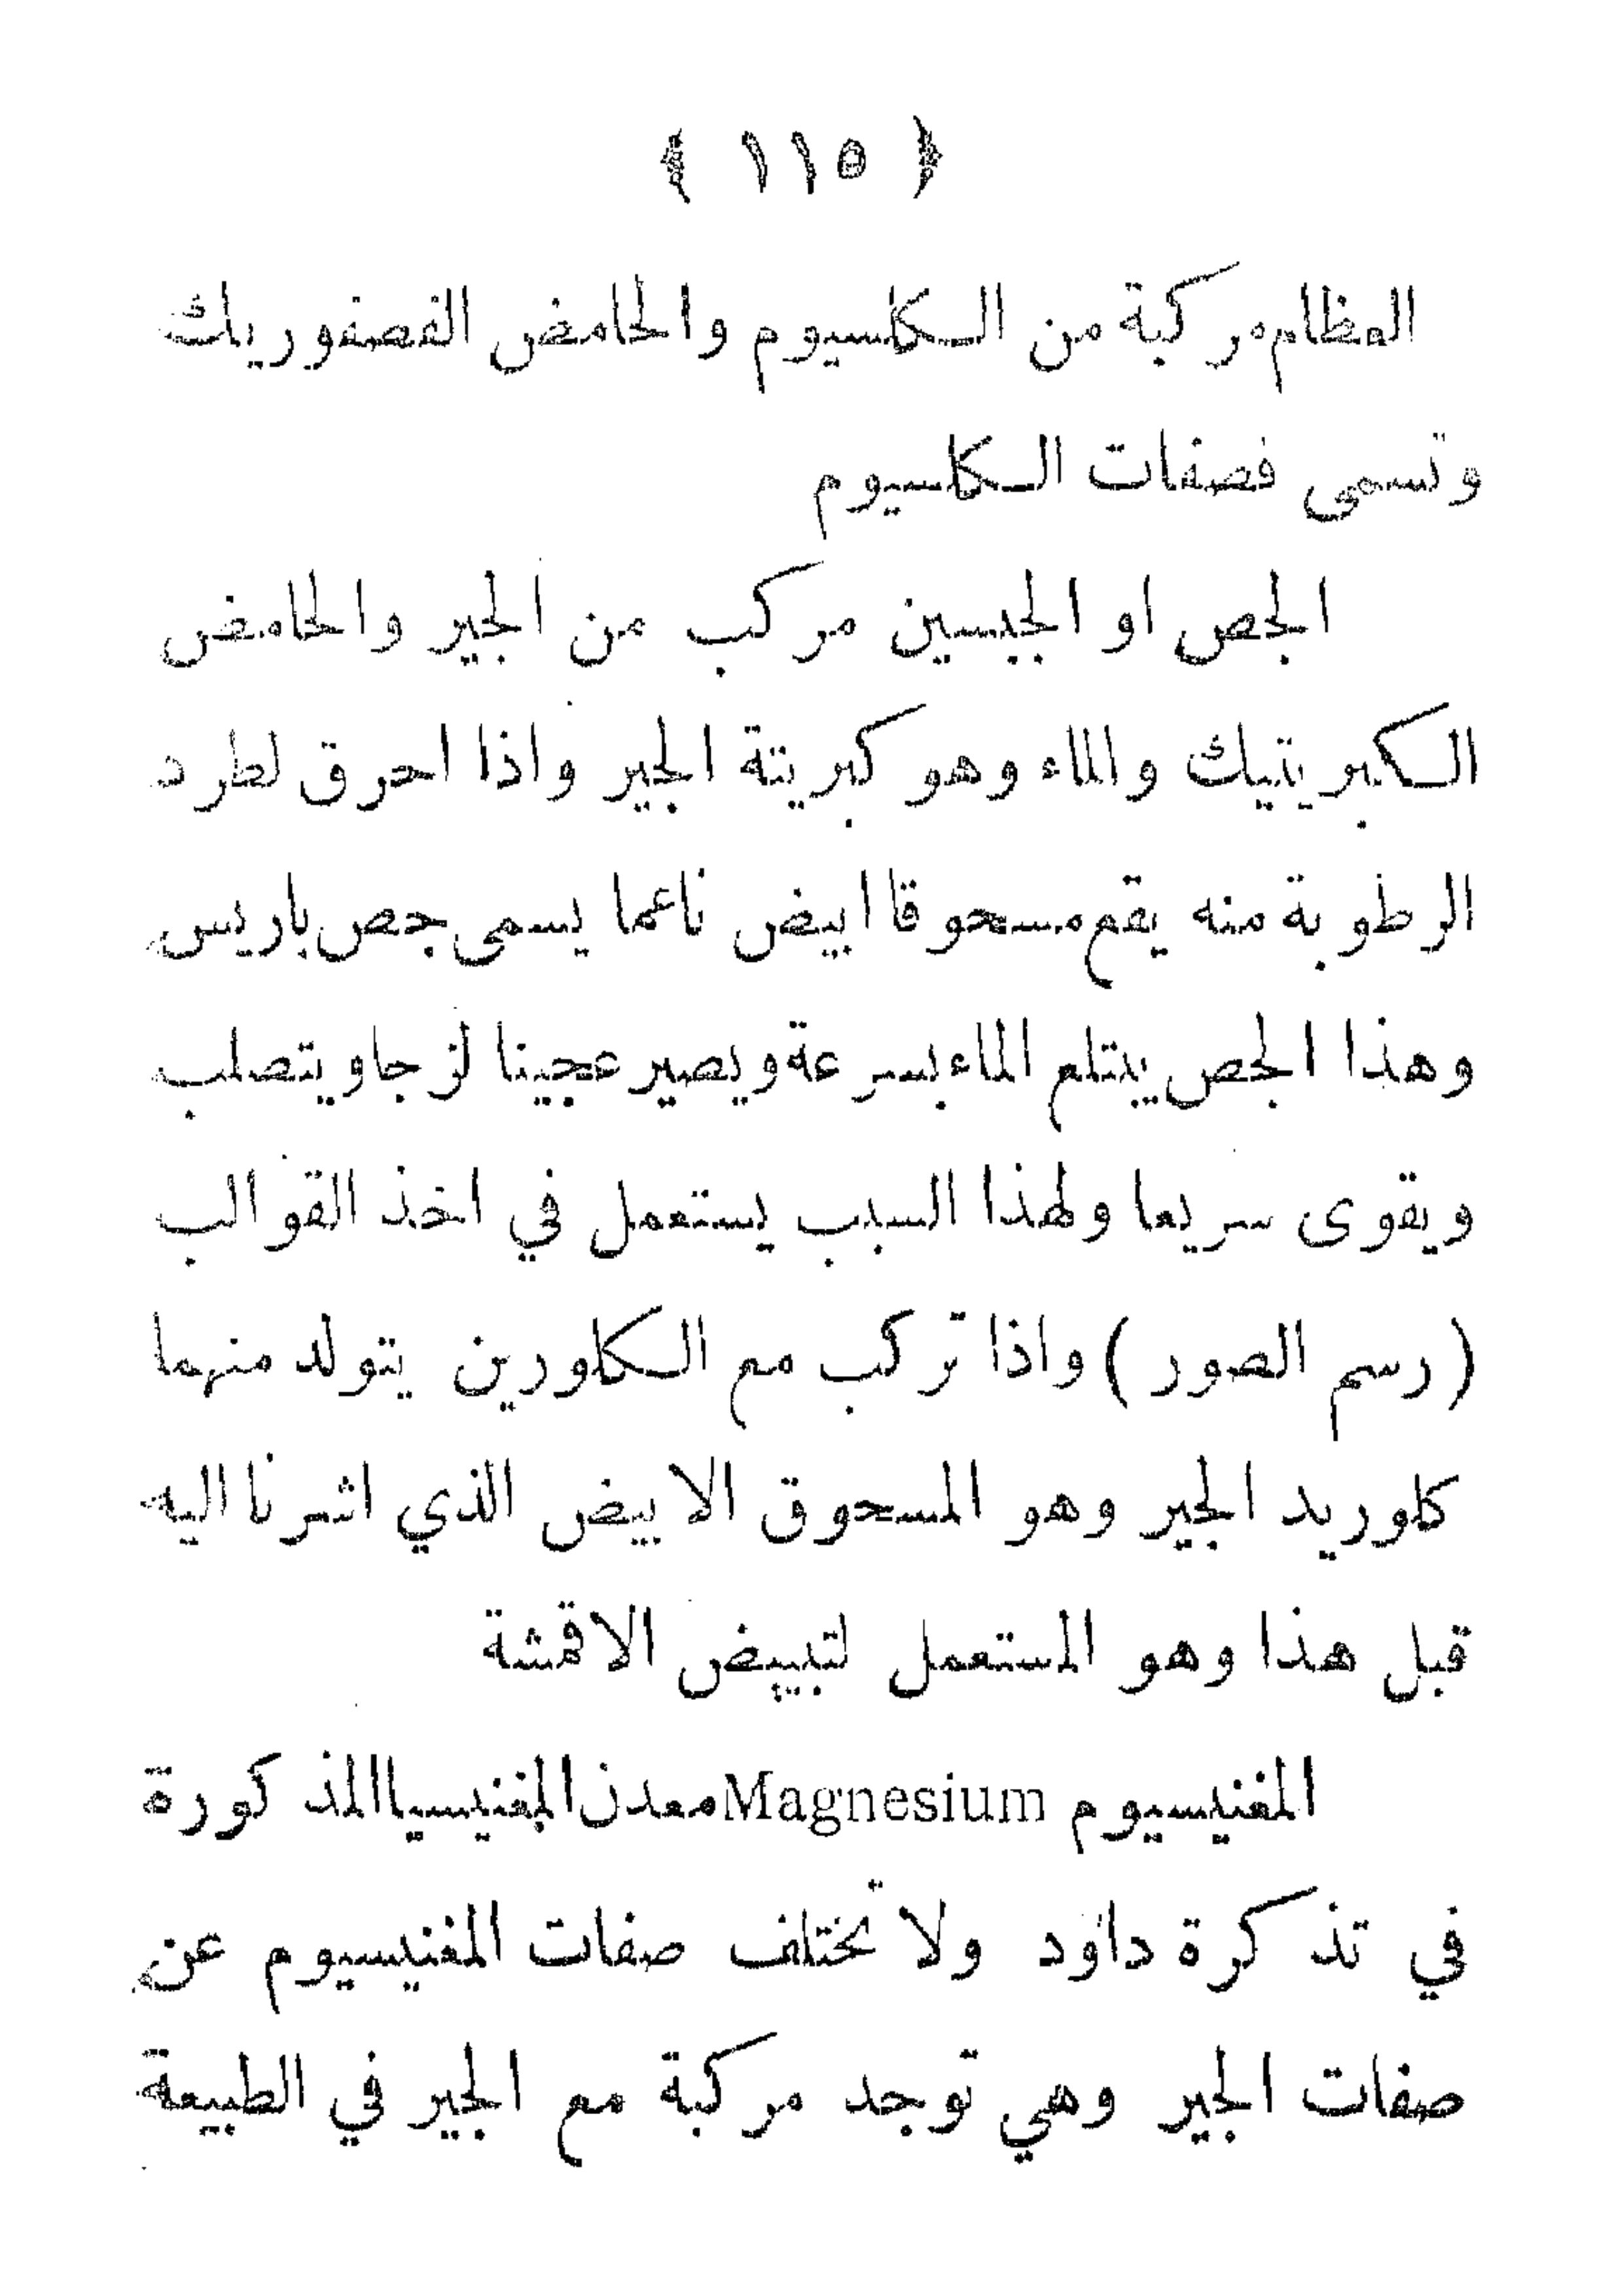 ﴿ ١١٥ ﴾
العظام مركبة من الكلسيوم والحامض الفصفوريك
وتسمى فصفات الكلسيوم
الجص او الجبسين مركب من الجير والحامض
الكبريتيك والماء وهو كبريتة الجير واذا احرق لطرد
الرطوبة منه يقع مسحوقا ابيض ناعما يسمى جص باريس
وهذا الجص يبتلع الماء بسرعة ويصير عجينا لزجا ويتصلب
ويقوى سريعا ولهذا السبب يستعمل في اخذ القوالب
( رسم الصور ) واذا تركب مع الكلورين يتولد منهما
كلوريد الجير وهو المسحوق الابيض الذي اشرنا اليه
قبل هذا وهو المستعمل لتبييض الاقمشة
المغنيسيوم Magnesium معدن المغنيسيا المذكورة
في تذكرة داؤد ولا تختلف صفات المغنيسيوم عن
صفات الجير وهي توجد مركبة مع الجير في الطبيعة